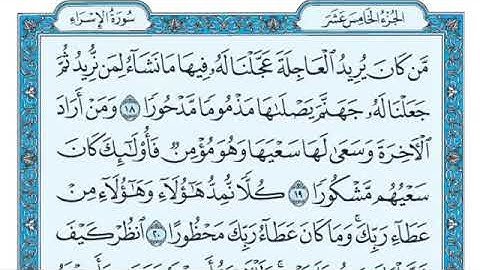 سُورَةُ الإِسْرَاءِ
الجُزْءُ الخَامِسَ عَشَرَ
مَّن كَانَ يُرِيدُ ٱلْعَاجِلَةَ عَجَّلْنَا لَهُۥ فِيهَا مَا نَشَآءُ لِمَن نُّرِيدُ ثُمَّ
جَعَلْنَا لَهُۥ جَهَنَّمَ يَصْلَىٰهَا مَذْمُومًا مَّدْحُورًا ١٨ وَمَنْ أَرَادَ
ٱلْأَخِرَةَ وَسَعَىٰ لَهَا سَعْيَهَا وَهُوَ مُؤْمِنٌ فَأُو۟لَـٰٓئِكَ كَانَ
سَعْيُهُم مَّشْكُورًا ١٩ كُلًّا نُّمِدُّ هَـٰٓؤُلَآءِ وَهَـٰٓؤُلَآءِ مِنْ
عَطَآءِ رَبِّكَ ۚ وَمَا كَانَ عَطَآءُ رَبِّكَ مَحْظُورًا ٢٠ ٱنظُرْ كَيْفَ